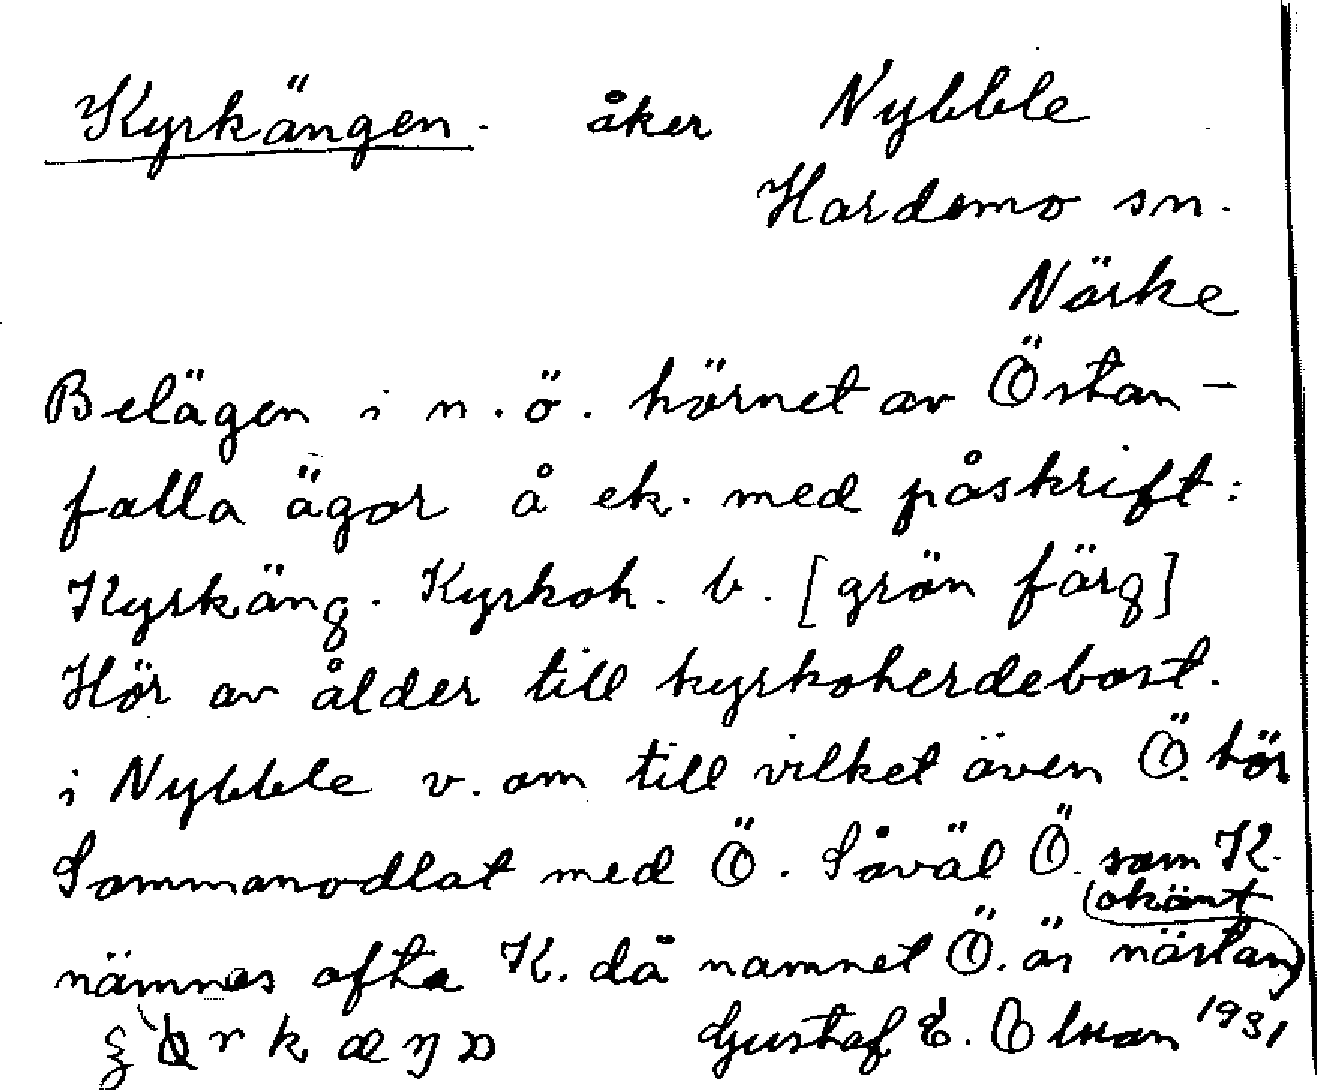 Kyrkängen. åker Nybble
Hardemo sn.
Närke
Belägen i n.ö. hörnet av Östan-
falla ägor å ek. med påskrift:
Kyrkäng. Kyrkoh. b. [grön färg]
Hör av ålder till kyrkoherdebost.
i Nybble v. om till vilket även Ö. hör
Sammanodlat med Ö. Såväl Ö. som K.
nämnes ofta K. då namnet Ö. är nästan okänt
Gustaf E. 1931